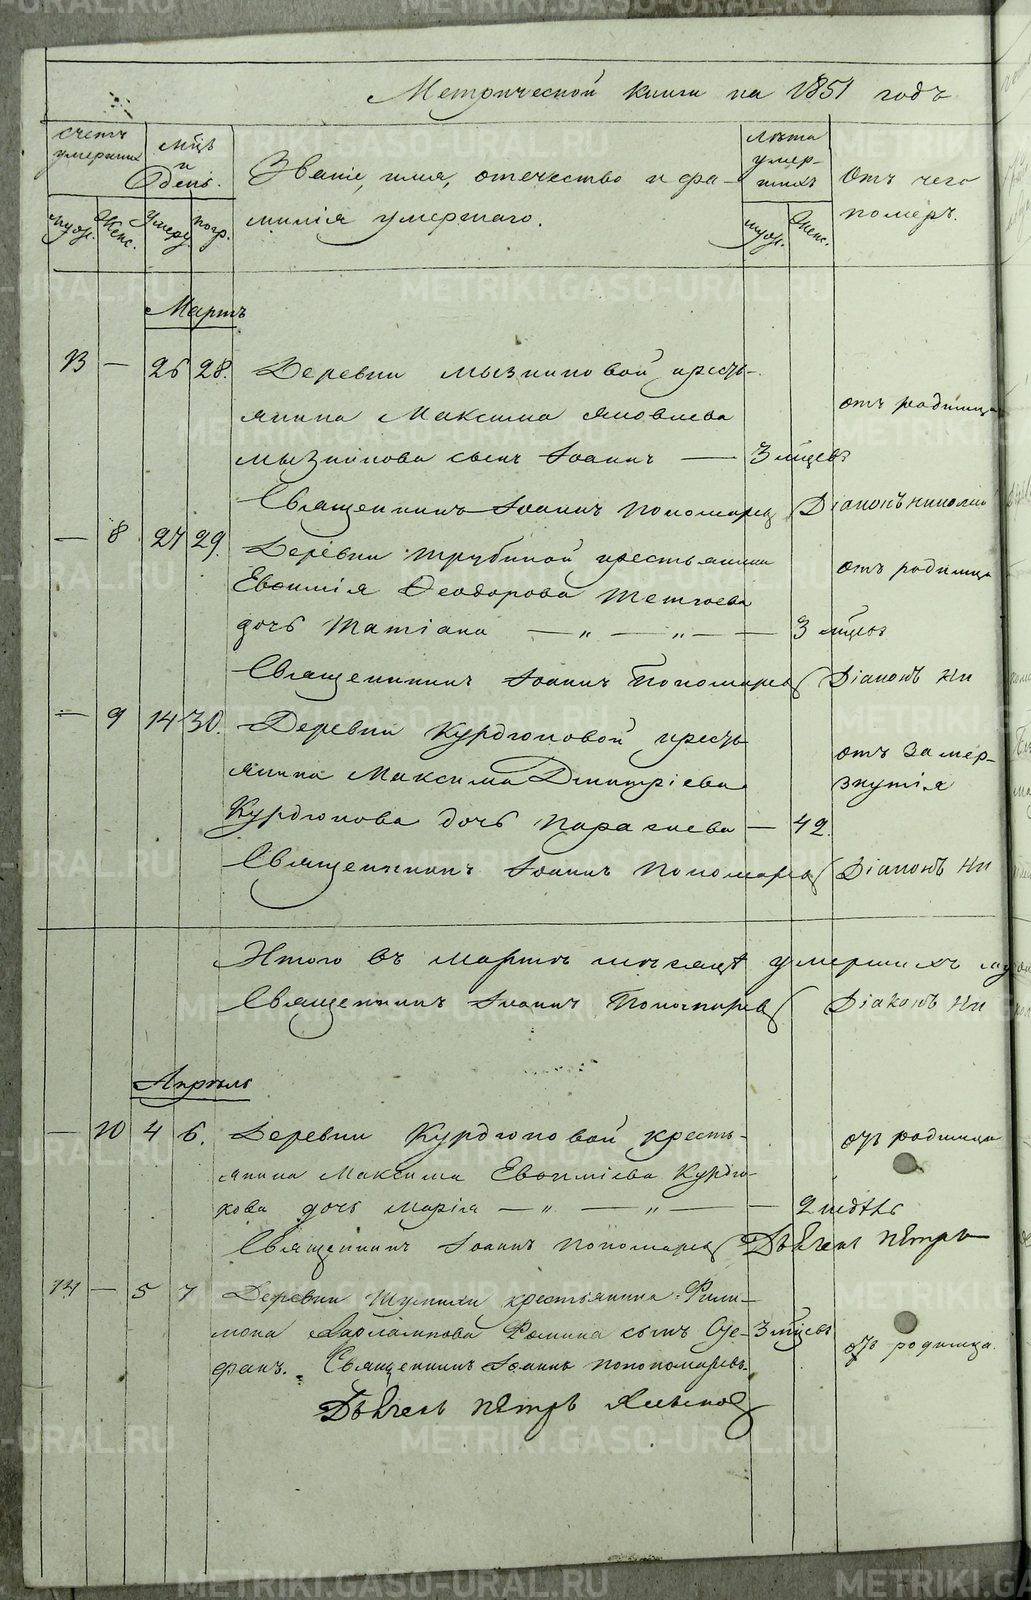 Метрической книги на 1851 годъ
счетъ умершихъ
мцъ и день.
Званіе, имя, отечество и фа-
милія умершаго.
лѣта умер-
шихъ
Отъ чего
померъ.
муж.
Женс.
Умеру
погр.
муж.
Женс.
Мартъ
13 — 26 28. Деревни Мызниковой кресть-
янина Максима Яковлева
отъ родимца
Мызникова сынъ Іоаннъ — 3 мцевъ
Священникъ Іоаннъ Пономарев Діаконъ Николай
— 8 27 29. Деревни Трубиной крестьянина
отъ родимца
Евѳимія Ѳеодорова Тетюева
дочь Татіана — „ — „ — — 3 мцевъ
Священникъ Іоаннъ Пономарев Діаконъ Ни
— 9 14 30. Деревни Курдюковой кресть-
янина Максима Дмитріева
отъ замер-
знутія
Курдюкова дочь Параскева — 42.
Священникъ Іоаннъ Пономарев Діаконъ Ни
Итого въ мартѣ мѣсяцѣ умершихъ
Священникъ Іоаннъ Пономарев Діаконъ Ни
Апрѣль
— 10 4 6. Деревни Курдюковой кресть-
отъ родимца
янина Максима Евѳиміева Курдю-
кова дочь Марія — „ — „ — — 2 недѣль
Священникъ Іоаннъ Пономарев Дьячекъ Петръ
14 — 5 7 Деревни Шумихи крестьянина Фили-
мона Харлампова Фомина сынъ Сте- 3 мцевъ
отъ родимца.
фанъ. Священникъ Іоаннъ Пономаревъ.
Дьячекъ Петръ
METRIKI.GASO-URAL.RU